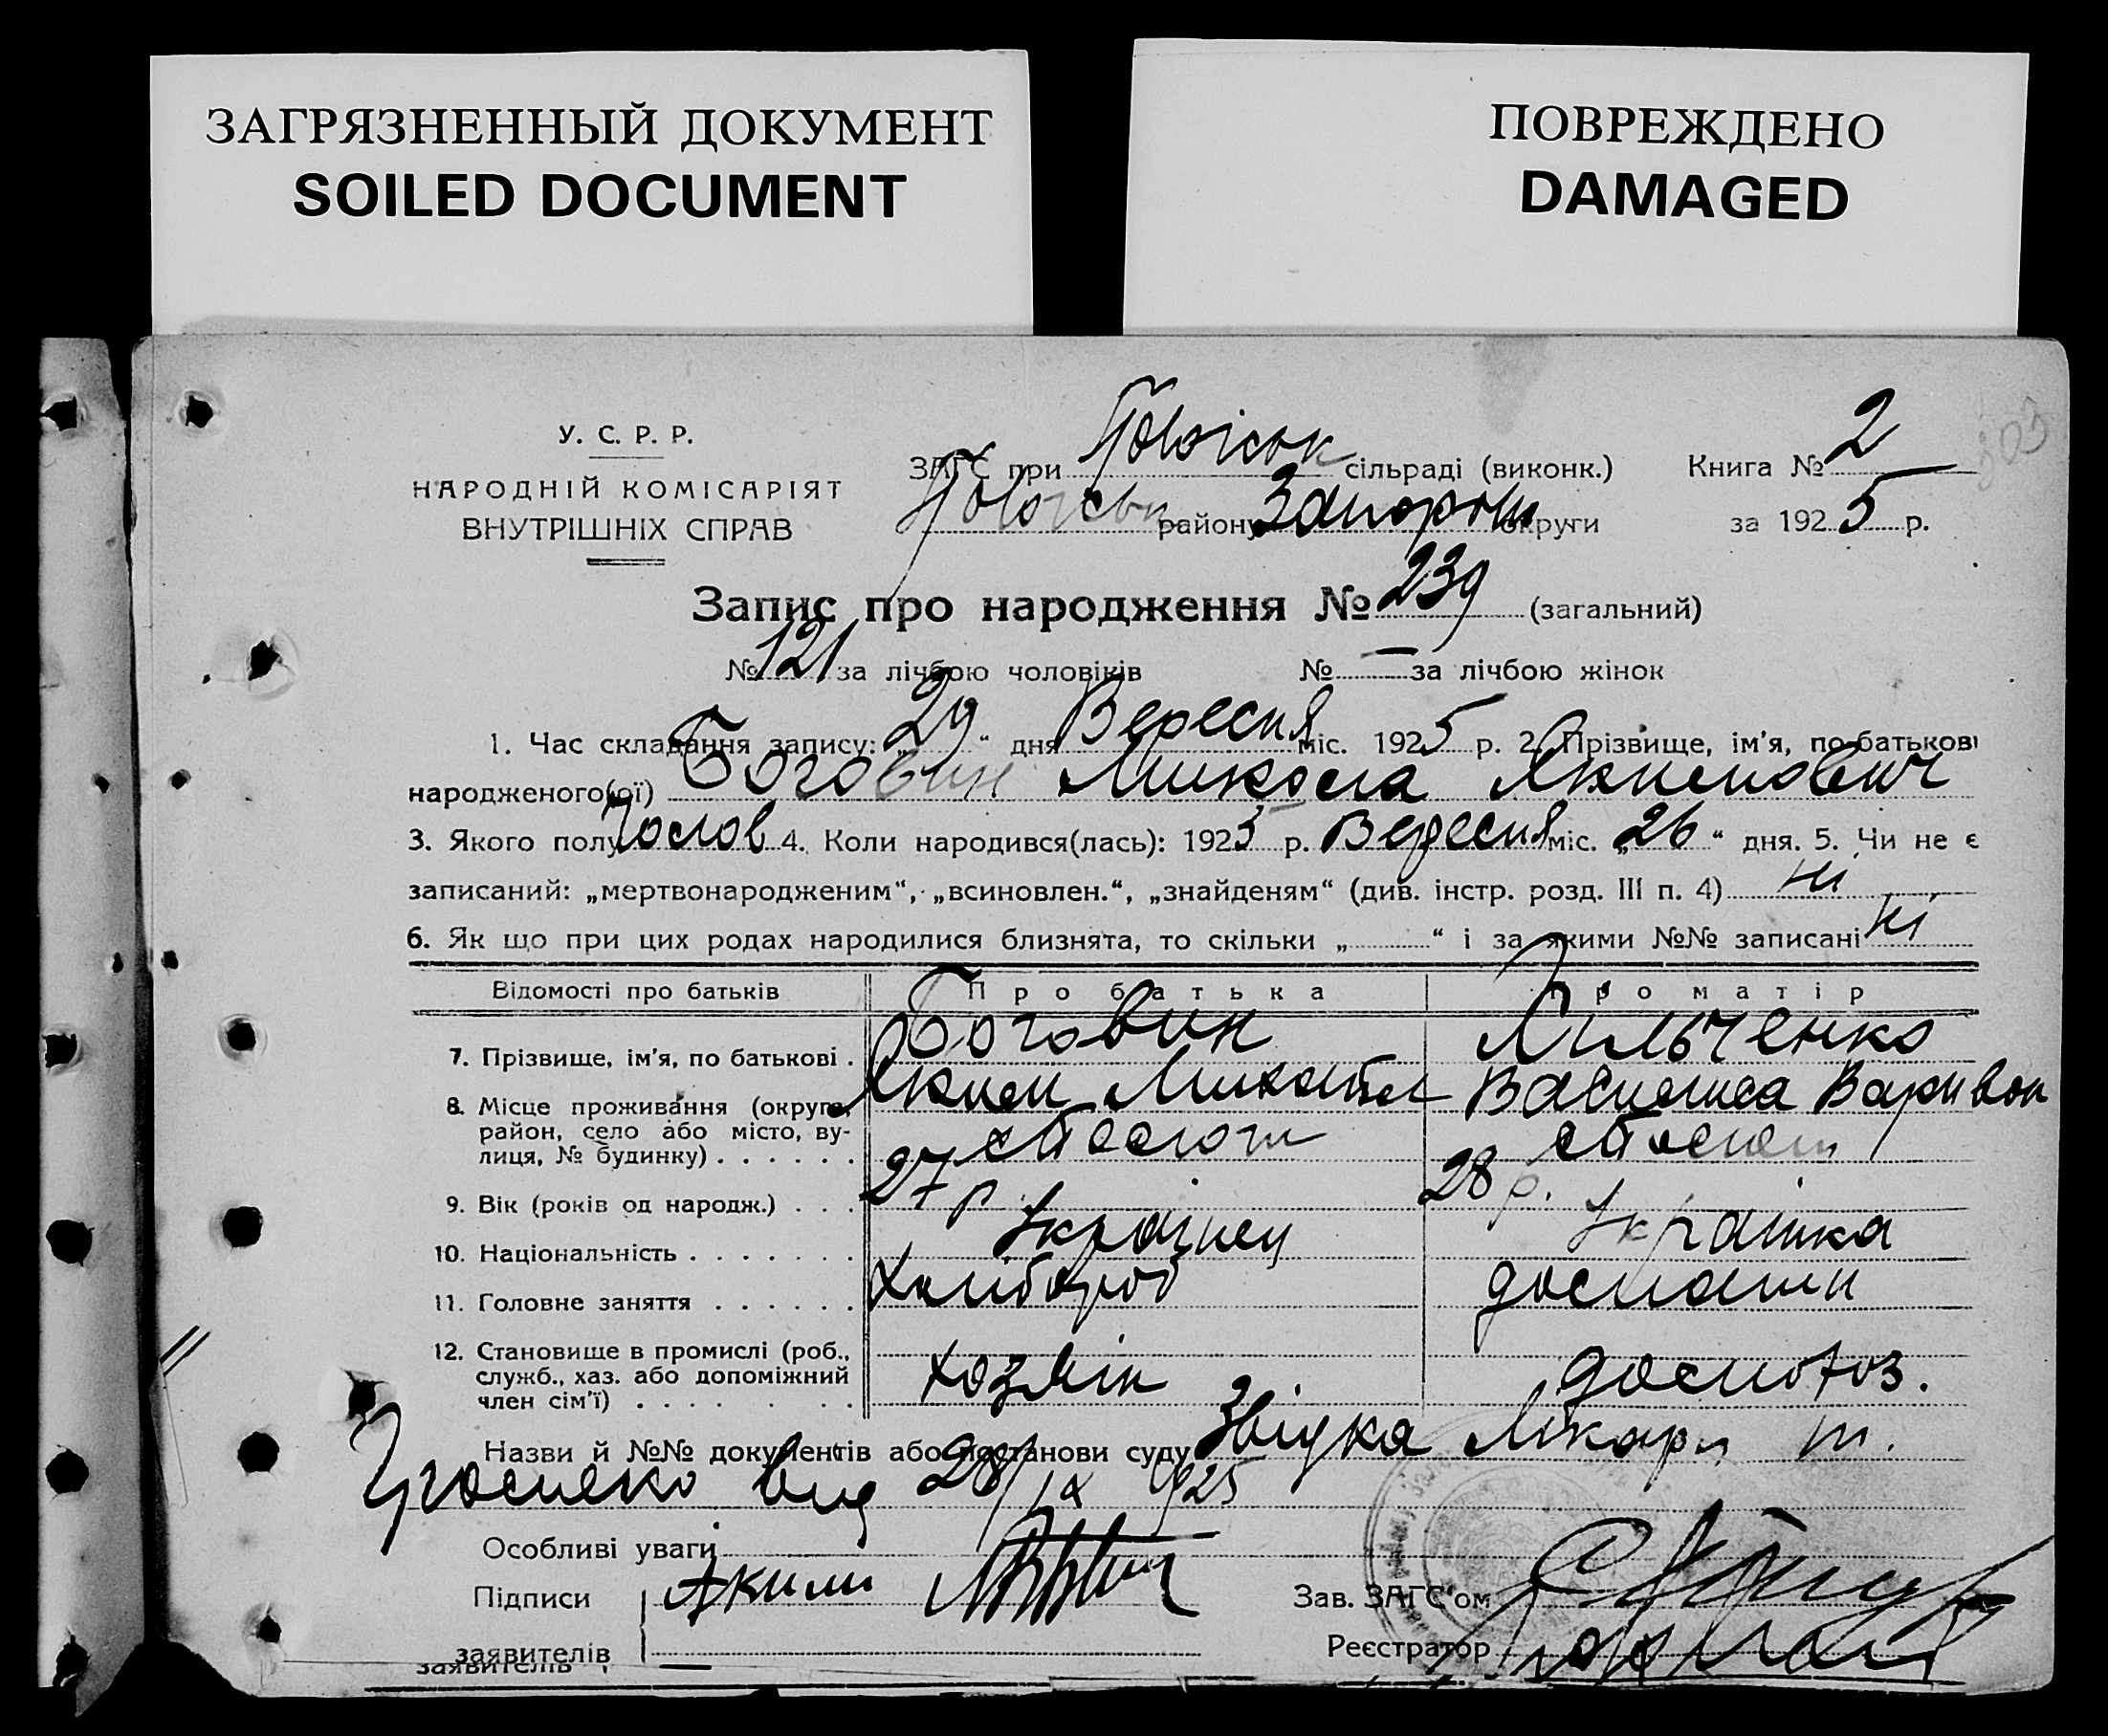 ЗАГРЯЗНЕННЫЙ ДОКУМЕНТ
SOILED DOCUMENT
ПОВРЕЖДЕНО
DAMAGED
У. С. Р. Р.
НАРОДНІЙ КОМІСАРІЯТ
ВНУТРІШНІХ СПРАВ
ЗАГС при сільраді (виконк.) Книга № 2
району Запорізьк округи за 1925 р.
Запис про народження № 239 (загальний)
№ 121 за лічбою чоловіків № — за лічбою жінок
1. Час складання запису: „29“ дня Вересня міс. 1925 р. 2. Прізвище, ім'я, по-батькові
народженого(ої) Боговин Микола Якимович
3. Якого полу чолов 4. Коли народився(лась): 1925 р. Вересня міс. „26“ дня. 5. Чи не є
записаний: „мертвонародженим“, „всиновлен.“, „знайденям“ (див. інстр. розд. III п. 4) ні
6. Як що при цих родах народилися близнята, то скільки „ “ і за якими №№ записані ні
Відомості про батьків Про батька Про матір
7. Прізвище, ім'я, по батькові . Боговин Яким Михайл Васился Варивон
8. Місце проживання (округа, район, село або місто, вулиця, № будинку) . . . . . .
9. Вік (років од народж.) . . . 27 р 28 р.
10. Національність . . . . . . . Українец Українка
11. Головне заняття . . . . . . Хлібороб
12. Становище в промислі (роб., служб., хаз. або допоміжний член сім'ї) . . . . . . . хозяїн
Назви й №№ документів або постанови суду Звідка Лікаря т.
від 28/IX 925
Особливі уваги
Підписи Зав. ЗАГС'ом
заявителів Реєстратор
заявителів